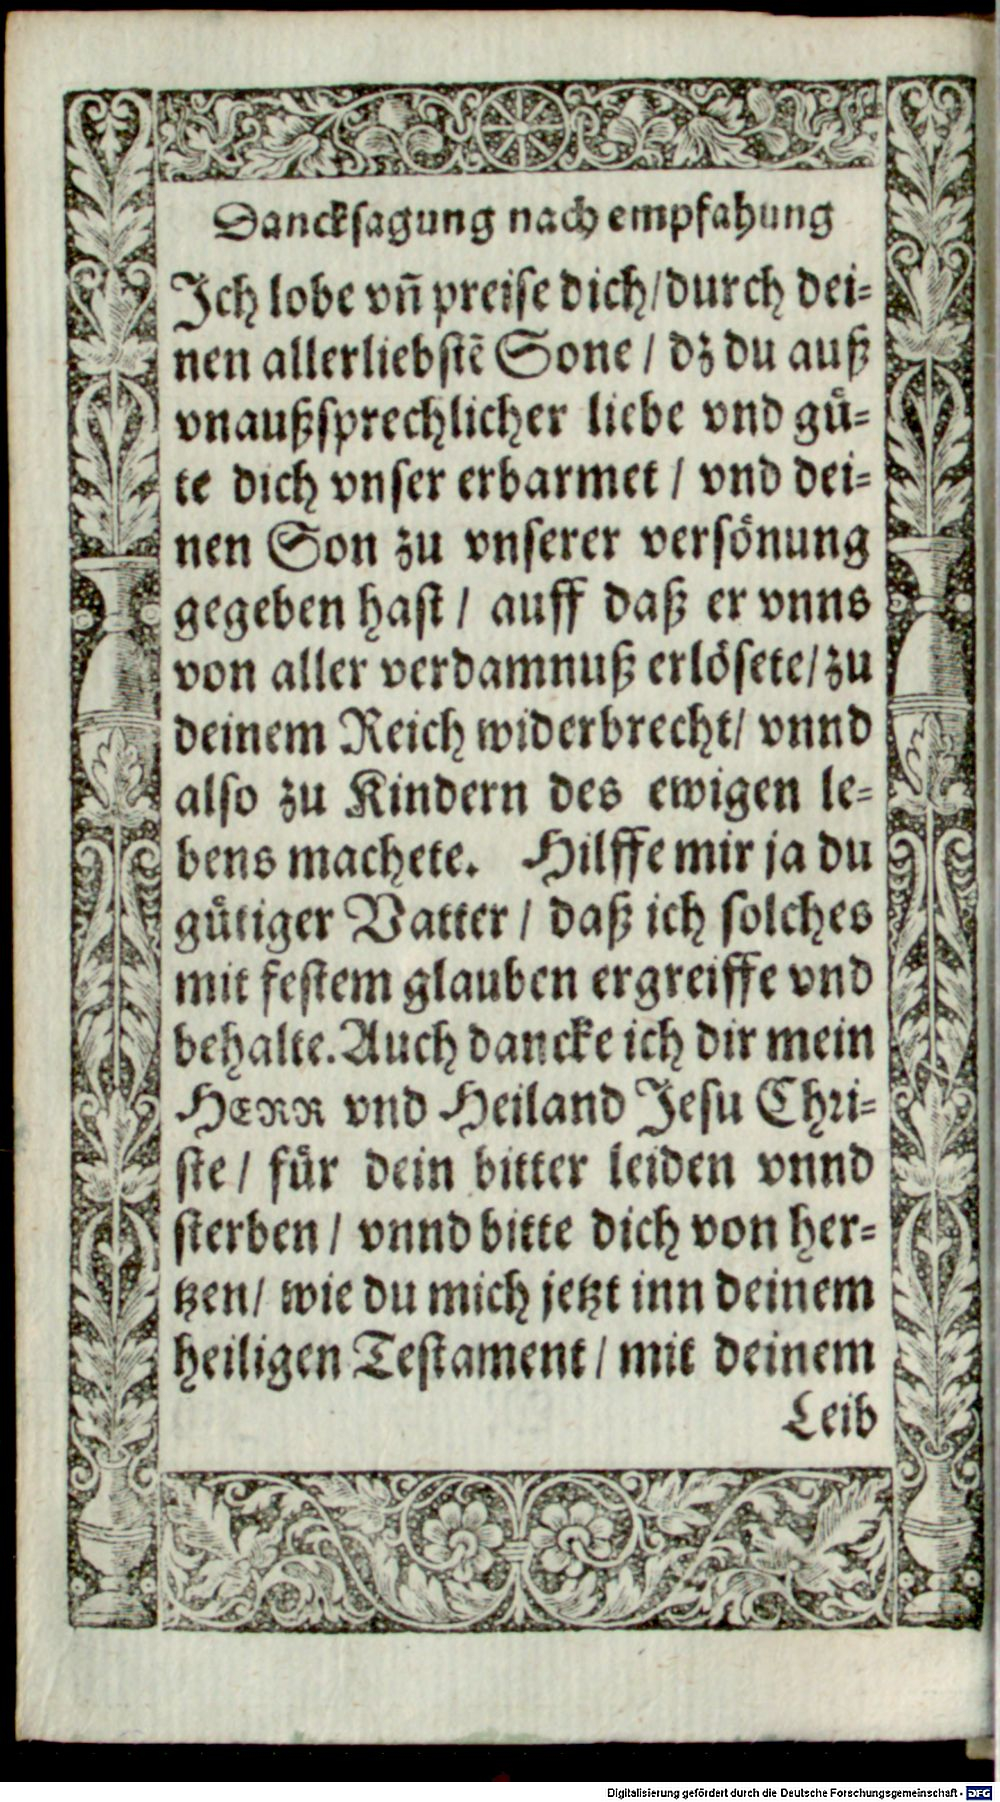 Dancksagung nach empfahung
Ich lobe vñ preise dich/durch dei=
nen allerliebstẽ Sone / dz du auß
vnaußsprechlicher liebe vnd guͤ=
te dich vnser erbarmet / vnd dei=
nen Son zu vnserer versoͤnung
gegeben hast / auff daß er vnns
von aller verdamnuß erloͤsete/zu
deinem Reich widerbrecht/ vnnd
also zu Kindern des ewigen le=
bens machete. Hilffe mir ja du
guͤtiger Vatter / daß ich solches
mit festem glauben ergreiffe vnd
behalte. Auch dancke ich dir mein
HERR vnd Heiland Jesu Chri=
ste / fuͤr dein bitter leiden vnnd
sterben / vnnd bitte dich von her=
tzen/ wie du mich jetzt inn deinem
heiligen Testament / mit deinem
Leib
Digitalisierung gefördert durch die Deutsche Forschungsgemeinschaft - DFG